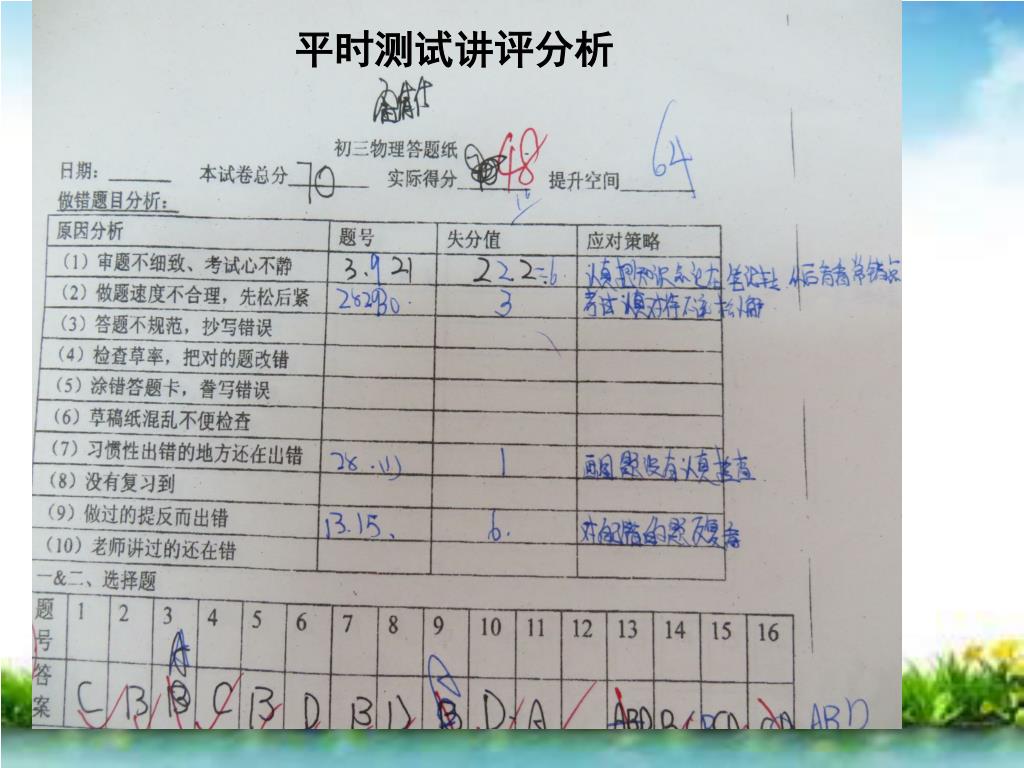 平时测试讲评分析
初三物理答题纸
日期: 本试卷总分 70 实际得分 48 提升空间 64
做错题目分析:
原因分析 题号 失分值 应对策略
(1) 审题不细致、考试心不静 3.9 21 2 2 2=6
(2) 做题速度不合理，先松后紧 28 29 30 3
(3) 答题不规范，抄写错误
(4) 检查草率，把对的题改错
(5) 涂错答题卡，誊写错误
(6) 草稿纸混乱不便检查
(7) 习惯性出错的地方还在出错 28.(1) 1 画图题没有认真检查
(8) 没有复习到
(9) 做过的提反而出错 13.15、 6.
(10) 老师讲过的还在错
一&二、选择题
题号 1 2 3 4 5 6 7 8 9 10 11 12 13 14 15 16
A
答案 C B B C B D B D B D A ABD B BCD ABD